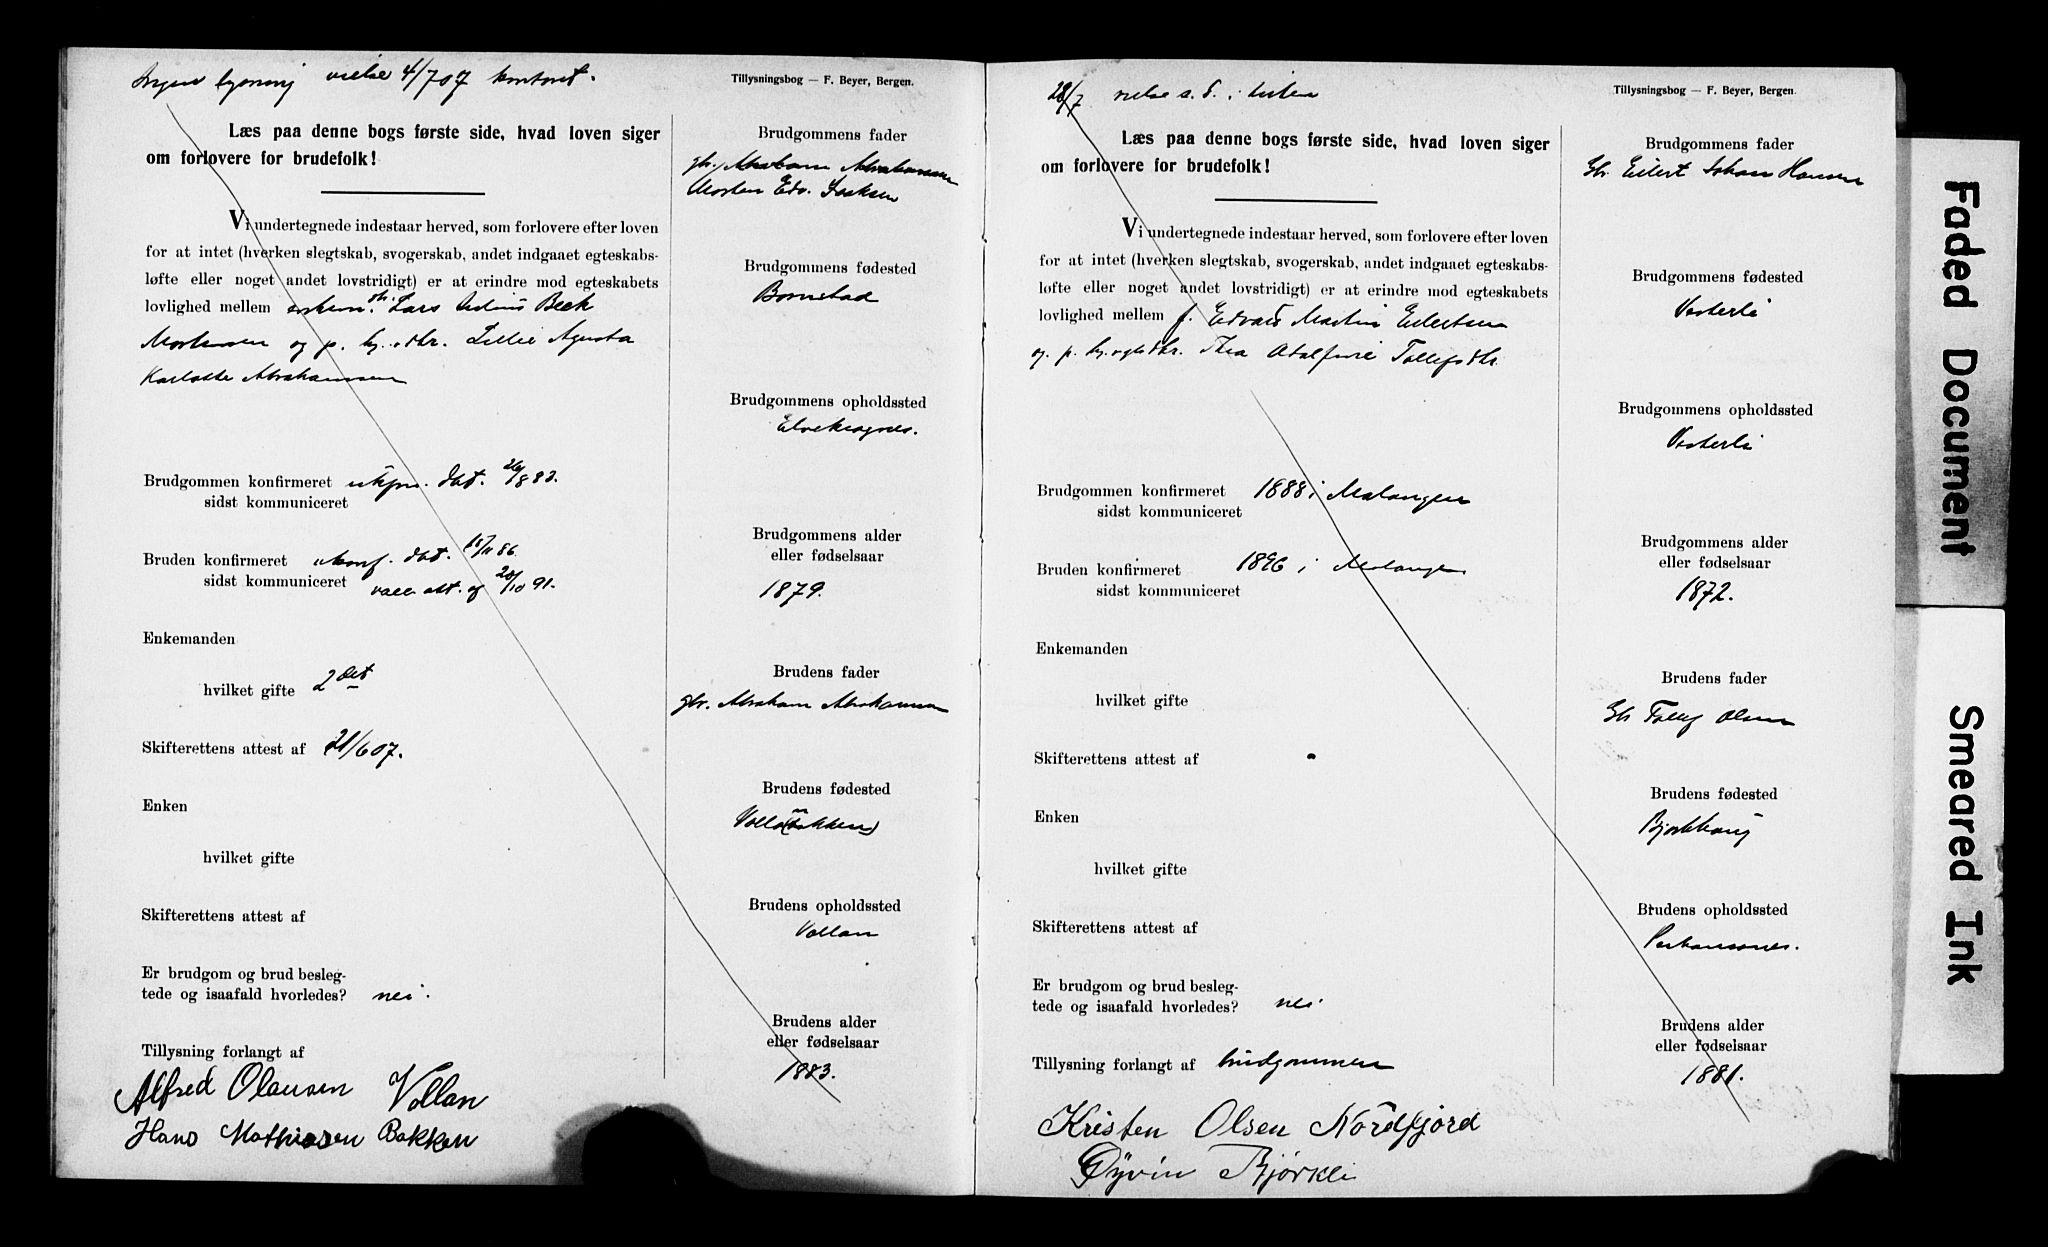 Ingen lysning vielse 4/7 07 kontoret.
Tillysningsbog — F. Beyer, Bergen.
Læs paa denne bogs første side, hvad loven siger
om forlovere for brudefolk!
Vi undertegnede indestaar herved, som forlovere efter loven
for at intet (hverken slegtskab, svogerskab, andet indgaaet egteskabs-
løfte eller noget andet lovstridigt) er at erindre mod egteskabets
lovlighed mellem Lars Beck
og p. Lillie Agusta
Abrahamsen
Brudgommen konfirmeret dbt. 8 83.
sidst kommuniceret
Bruden konfirmeret ukonf. dbt. 86
sidst kommuniceret vacc. att. af 20/10 91.
Enkemanden
hvilket gifte 2det
Skifterettens attest af 21/6 07.
Enken
hvilket gifte
Skifterettens attest af
Er brudgom og brud besleg-
tede og isaafald hvorledes? nei.
Tillysning forlangt af
Alfred Olausen Vollan
Hans Mathiesen Bakken
Brudgommens fader
gbr. Abraham Abrahamsen
Morten Edv. Isaksen
Brudgommens fødested
Brudgommens opholdssted
Elvekrognes.
Brudgommens alder
eller fødselsaar
1879.
Brudens fader
gbr. Abraham Abrahamsen
Brudens fødested
Vollan (Bakken)
Brudens opholdssted
Vollan
Brudens alder
eller fødselsaar
1883.
28/7 vielse s. d. i kirken
Tillysningsbog — F. Beyer, Bergen.
Læs paa denne bogs første side, hvad loven siger
om forlovere for brudefolk!
Vi undertegnede indestaar herved, som forlovere efter loven
for at intet (hverken slegtskab, svogerskab, andet indgaaet egteskabs-
løfte eller noget andet lovstridigt) er at erindre mod egteskabets
lovlighed mellem Edvard Martin Eilertsen
og p. Thea Adolfine Tollefsdtr.
Brudgommen konfirmeret 1888 i Malangen
sidst kommuniceret
Bruden konfirmeret 1896 i Malangen
sidst kommuniceret
Enkemanden
hvilket gifte
Skifterettens attest af
Enken
hvilket gifte
Skifterettens attest af
Er brudgom og brud besleg-
tede og isaafald hvorledes? nei
Tillysning forlangt af brudgommen
Kristen Olsen Nordfjord
Øyvin Bjørkli
Brudgommens fader
Gbr. Eilert Johan Hansen
Brudgommens fødested
Vesterli
Brudgommens opholdssted
Vesterli
Brudgommens alder
eller fødselsaar
1872.
Brudens fader
Gbr Tollef Olsen
Brudens fødested
Bjorkhaug
Brudens opholdssted
Brudens alder
eller fødselsaar
1881.
Faded Document
Smeared Ink